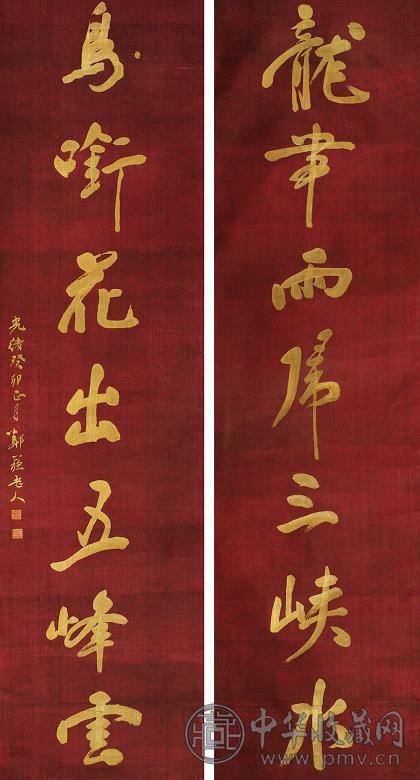 龍牽雨歸三峽水
鳥銜花出五峰雲
光緒癸卯正月鄰蘇老人
中华收藏网
www.pmv.cn